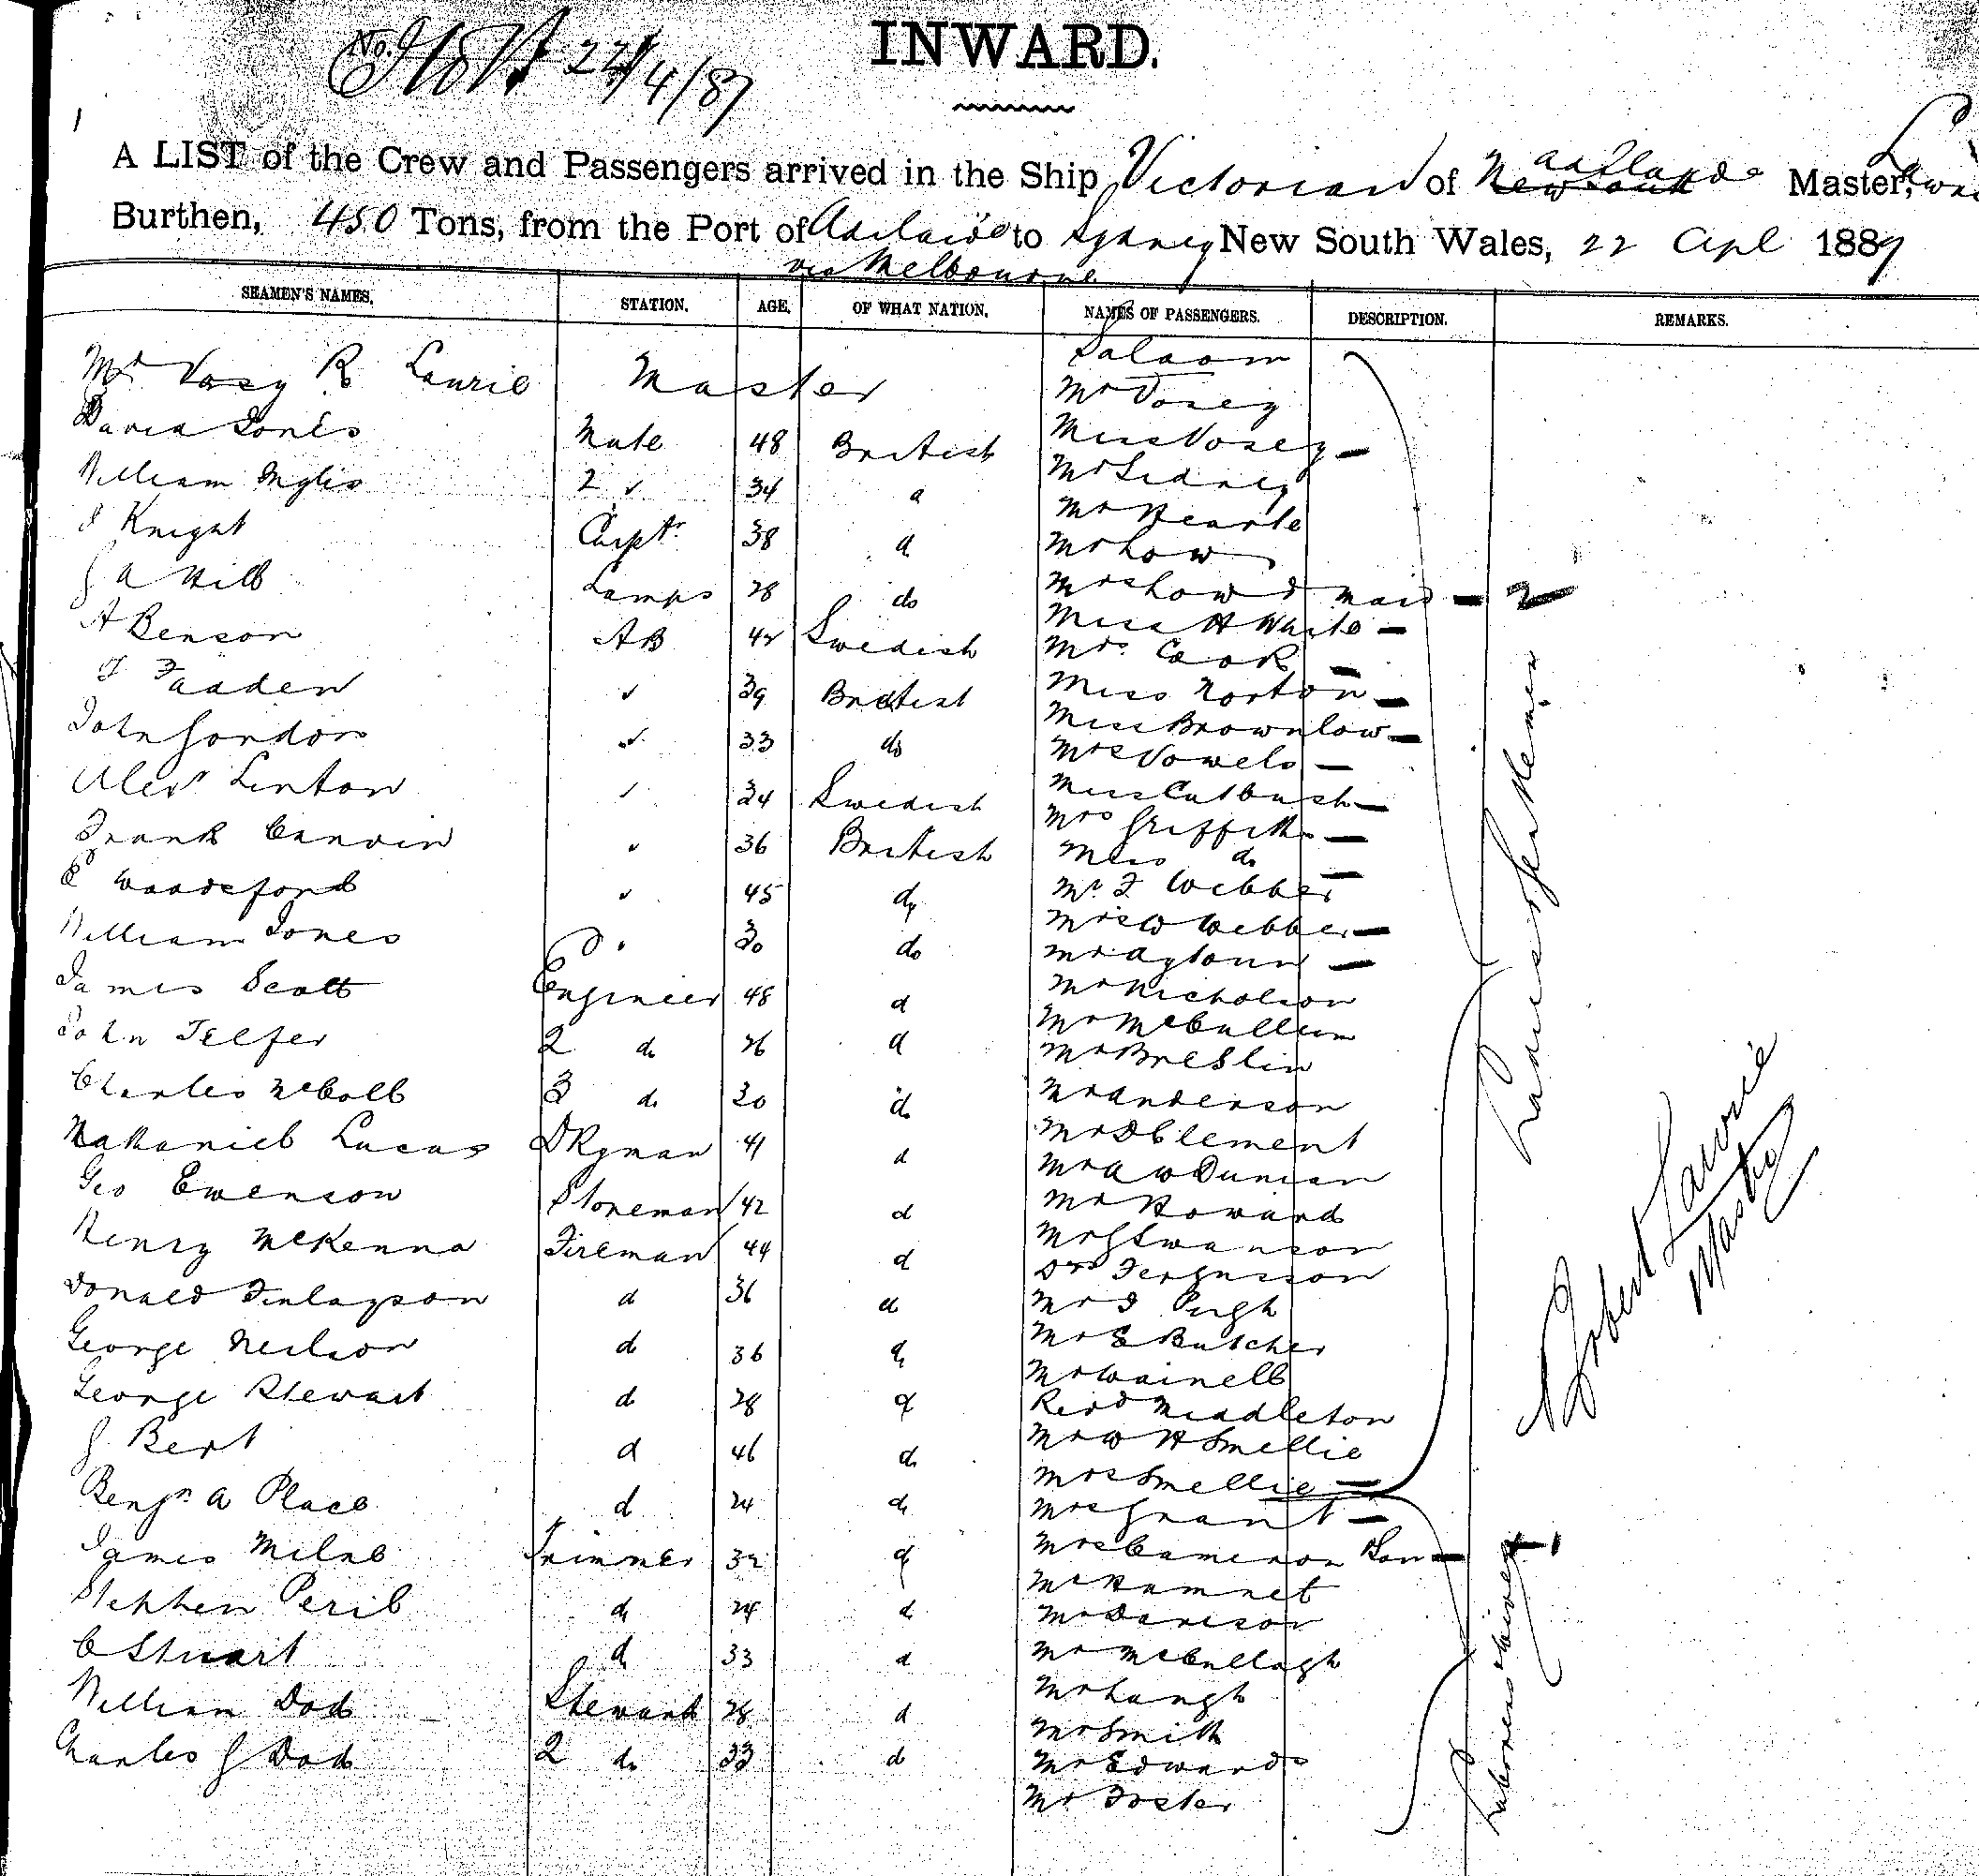 INWARD.
No. 22/4/87
A LIST of the Crew and Passengers arrived in the Ship Victorian of Adelaide Master, Law
Burthen, 450 Tons, from the Port of Adelaide to Sydney New South Wales, 22 Apl 1887
via Melbourne
SEAMEN'S NAMES. STATION. AGE. OF WHAT NATION. NAMES OF PASSENGERS. DESCRIPTION. REMARKS.
Saloom
R Laurie Master Mr Vosey
David Jones Mate 48 British Miss Vosey
William Inglis 2 34 Mr Sidney
Knight Carptr 38 d Mr Hearle
Mr Low
G A Hill Lamps 28 do Mrs Low & maid 2
A Benson AB 42 Swedish Miss H White
Mrs Cook
T Fadden 39 British Miss Norton
John Gordon 33 do Miss Brownlow
Mrs Vowels
Alexr Linton 24 Swedish Miss Cutbush
Mrs Griffiths
Frank Canvin 36 British Miss do
E Woodsford 45 do Mr F Webber
Mrs W Webber
William Jones 30 do Mr Aytoun
James Scott Engineer 48 d Mr Nicholson
Mr McCullum
John Telfer 2 do 26 d Mr Breslin
Charles McColl 3 do 30 do Mr Anderson
Mr D Clement
Nathaniel Lucas DKyman 41 d Mr A W Duncan
Geo Ewenson Storeman 42 d Mr Howard
Mr G Swanson
Henry McKenna Fireman 44 d Dr Fergusson
Donald Finlayson d 36 d Mr J Pugh
Mr E Butcher
George Neilson d 36 d Mr Wainell
George Stewart d 28 d Revd Middleton
G. Bert d 46 d Mr W H Smellie
Mrs Smellie
Benjn A Place d 24 d Mrs Grant
James Milne Trimmer 32 d Mrs Cameron Son 1
Mr Hamnet
Stephen Peril d 24 d Mr Davison
C Stuart d 33 d Mr McCullagh
William Dod Steward 28 d Mr Laugh
Mr Smith
Charles G Dod 2 do 33 d Mr Edwards
Mr Foster
Ladies & Gentlemen
Labourers & Miners
Robert Lawrie
Master